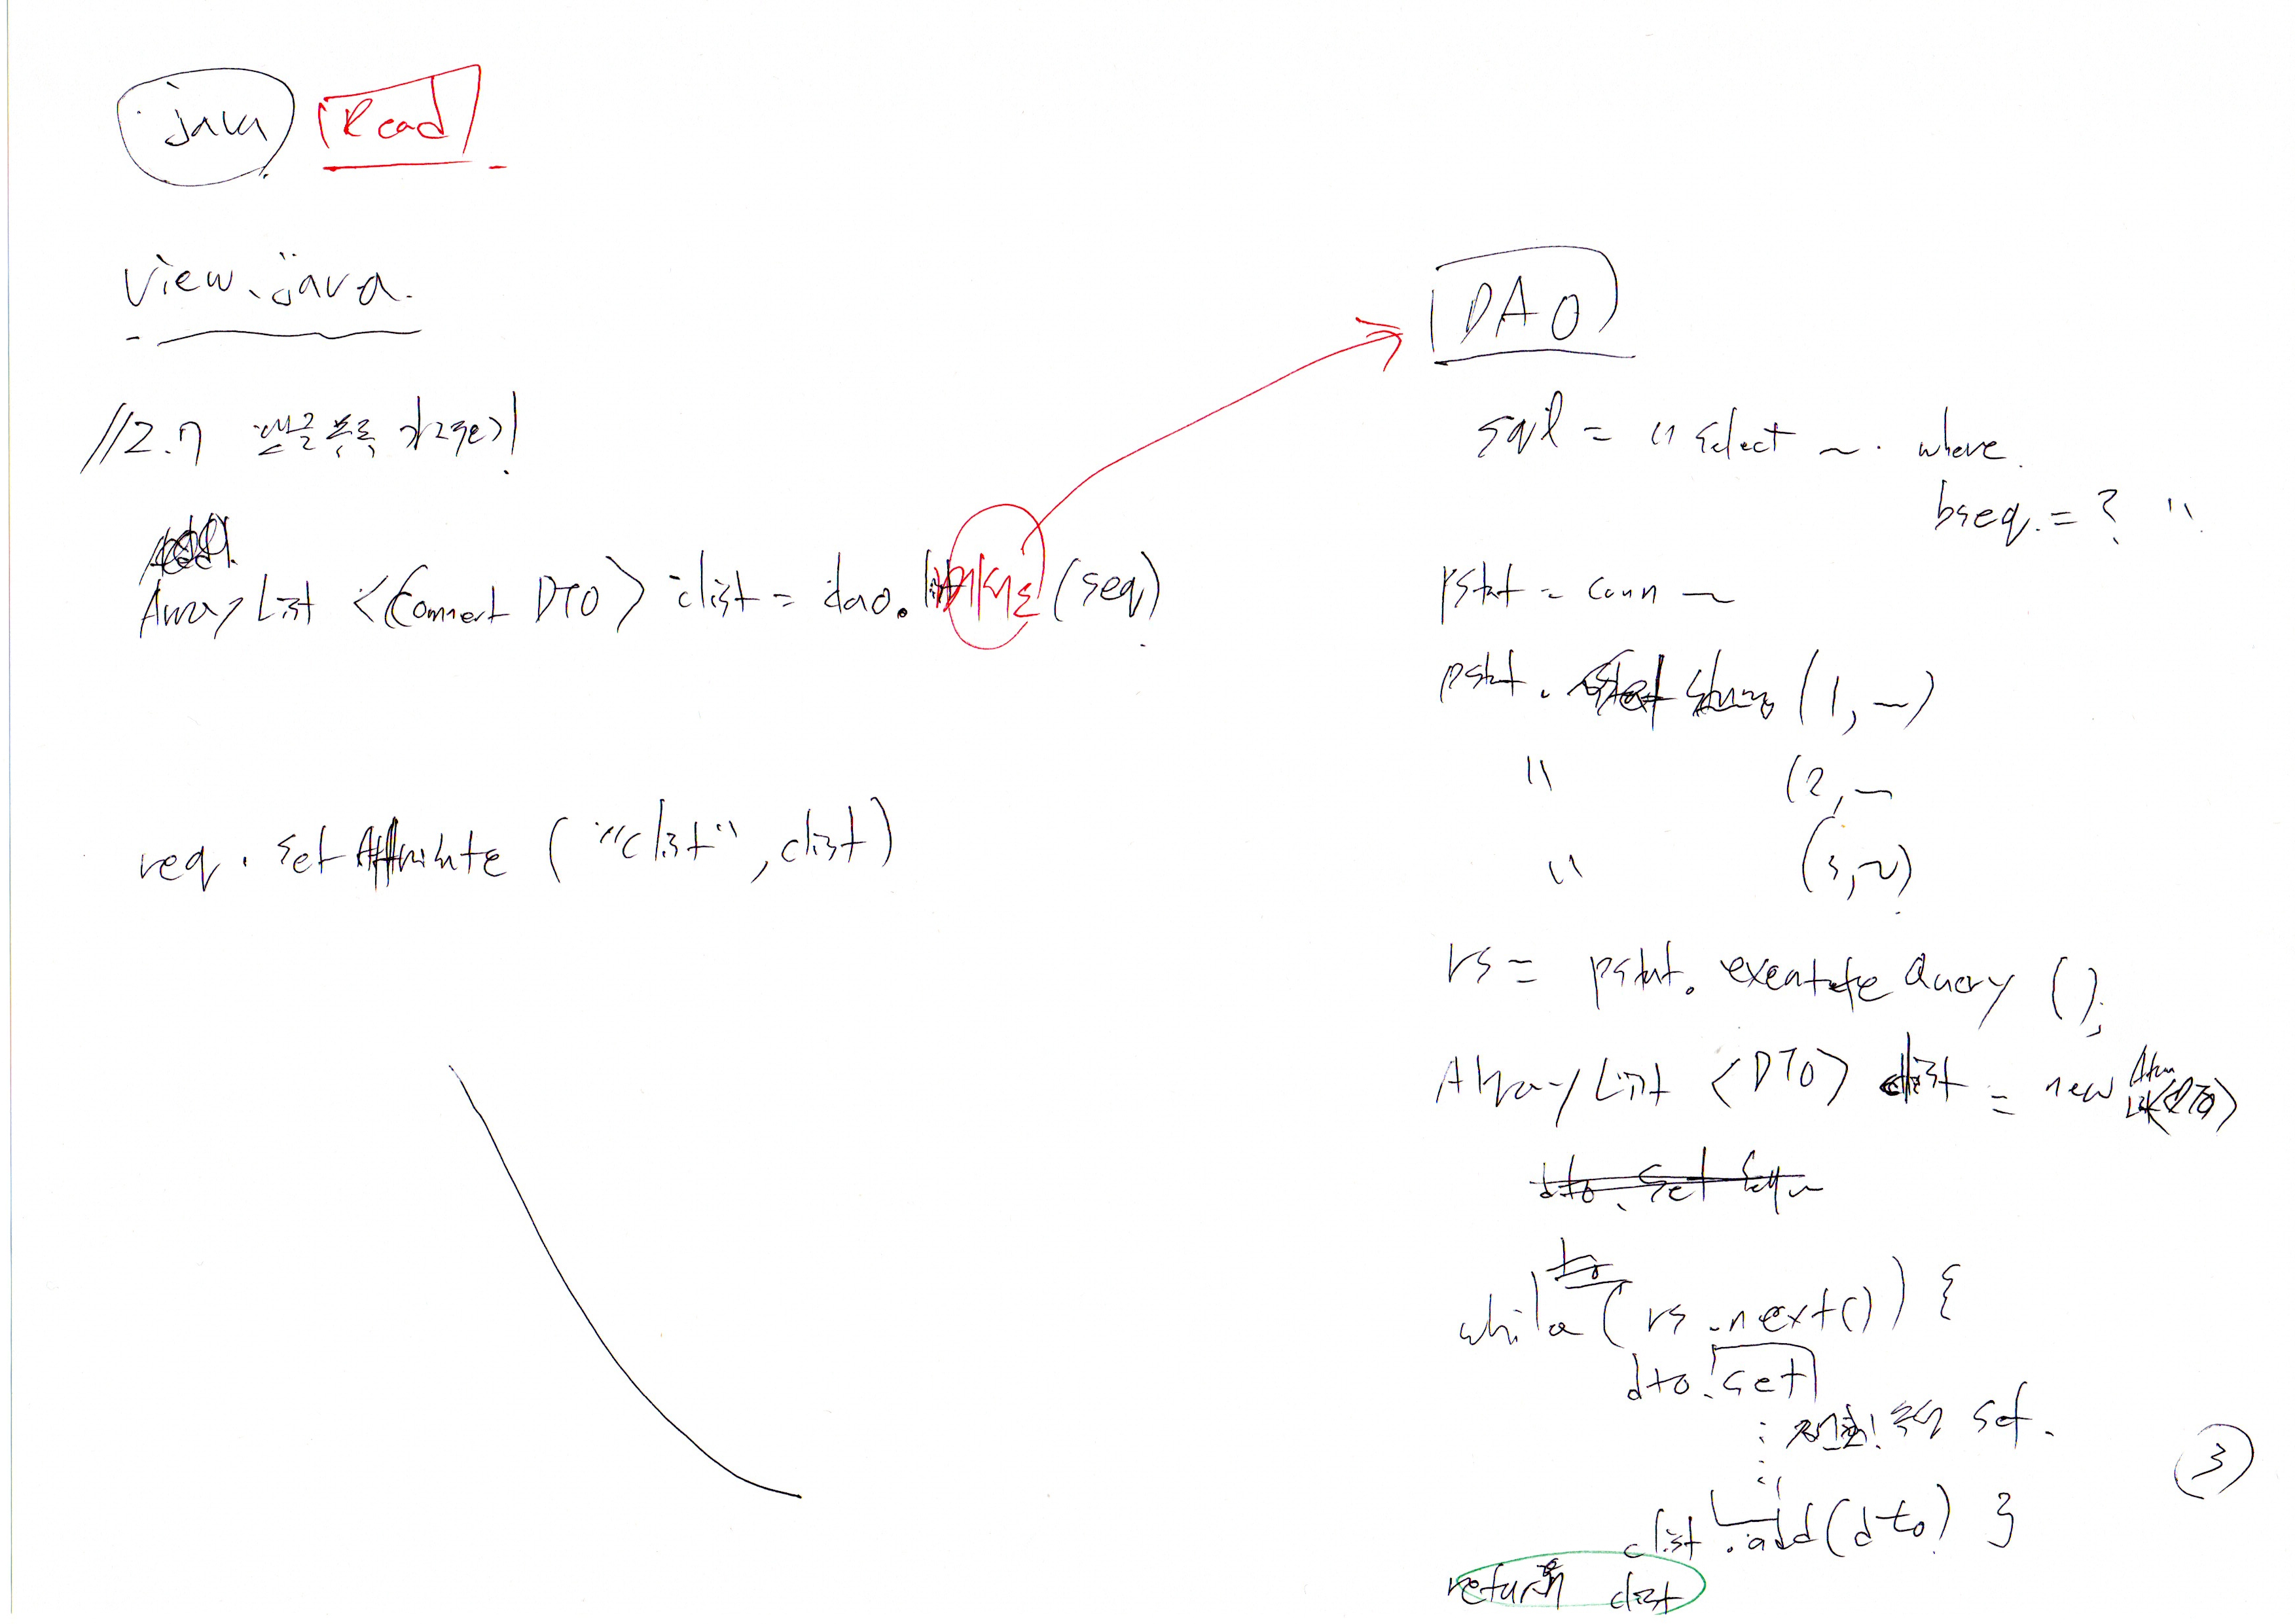 java Read
View.java.
//2.7 댓글 목록 가져오기!
ArrayList <Comment DTO> clist = dao.메서드(seq)
req.setAttribute ("clist", clist)
DAO
sql = "select ~. where
bseq = ? "
pstat = conn ~
pstat. set String (1, ~)
" (2, ~
" (3, ~)
rs = pstat. executeQuery ();
ArrayList <DTO> clist = new Array List<DTO>
dto. set
while (rs.next()) {
dto.set
set.
clist .add(dto) }
return clist
3